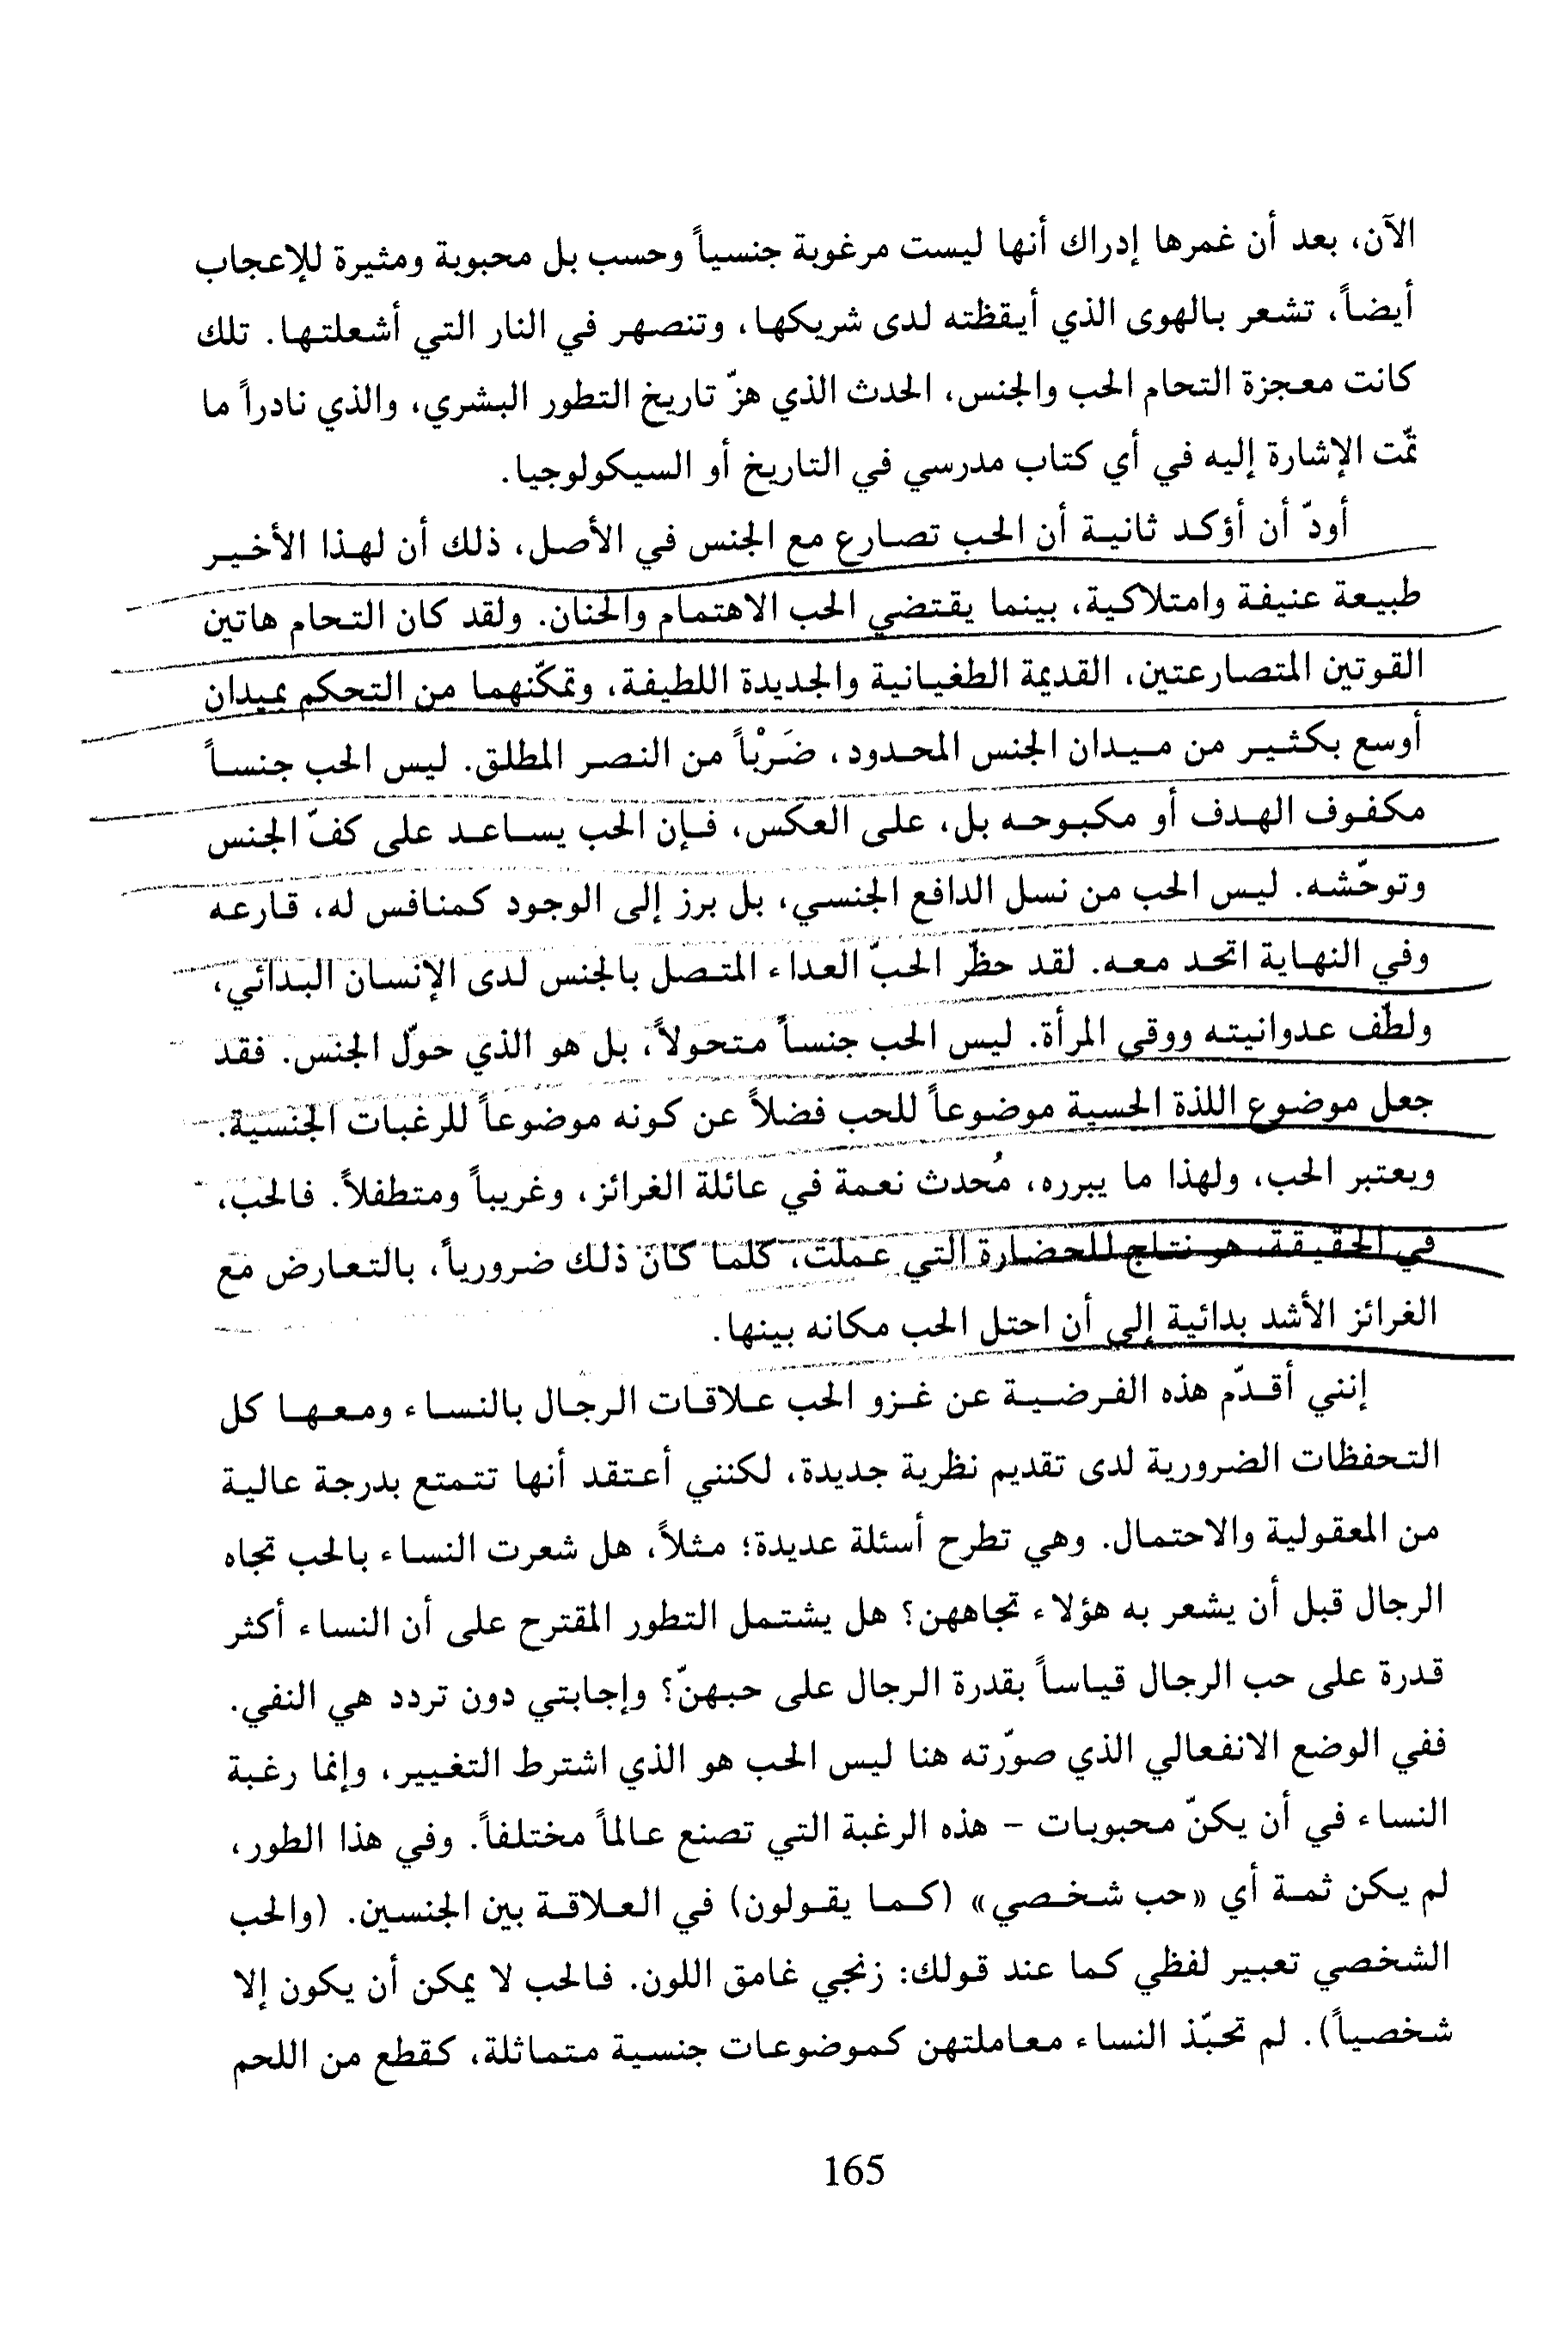 الآن، بعد أن غمرها إدراك أنها ليست مرغوبة جنسياً وحسب بل محبوبة ومثيرة للإعجاب
أيضاً، تشعر بالهوى الذي أيقظته لدى شريكها، وتنصهر في النار التي أشعلتها. تلك
كانت معجزة التحام الحب والجنس، الحدث الذي هزّ تاريخ التطور البشري، والذي نادراً ما
تمّت الإشارة إليه في أي كتاب مدرسي في التاريخ أو السيكولوجيا.
أودّ أن أؤكد ثانية أن الحب تصارع مع الجنس في الأصل، ذلك أن لهذا الأخير
طبيعة عنيفة وامتلاكية، بينما يقتضي الحب الاهتمام والحنان. ولقد كان التحام هاتين
القوتين المتصارعتين، القديمة الطغيانية والجديدة اللطيفة، وتمكّنهما من التحكم بميدان
أوسع بكثير من ميدان الجنس المحدود، ضَرْباً من النصر المطلق. ليس الحب جنساً
مكفوف الهدف أو مكبوحه بل، على العكس، فإن الحب يساعد على كفّ الجنس
وتوحّشه. ليس الحب من نسل الدافع الجنسي، بل برز إلى الوجود كمنافس له، قارعه
وفي النهاية اتحد معه. لقد حظّر الحبّ العداء المتصل بالجنس لدى الإنسان البدائي،
ولطّف عدوانيته ووقي المرأة. ليس الحب جنساً متحولاً، بل هو الذي حوّل الجنس. فقد
جعل موضوع اللذة الحسية موضوعاً للحب فضلاً عن كونه موضوعاً للرغبات الجنسية.
ويعتبر الحب، ولهذا ما يبرره، مُحدث نعمة في عائلة الغرائز، وغريباً ومتطفلاً. فالحب،
في الحقيقة، هو نتاج للحضارة التي عملت، كلما كان ذلك ضرورياً، بالتعارض مع
الغرائز الأشد بدائية إلى أن احتل الحب مكانه بينها.
إنني أقدّم هذه الفرضية عن غزو الحب علاقات الرجال بالنساء ومعها كل
التحفظات الضرورية لدى تقديم نظرية جديدة، لكنني أعتقد أنها تتمتع بدرجة عالية
من المعقولية والاحتمال. وهي تطرح أسئلة عديدة؛ مثلاً، هل شعرت النساء بالحب تجاه
الرجال قبل أن يشعر به هؤلاء تجاههن؟ هل يشتمل التطور المقترح على أن النساء أكثر
قدرة على حب الرجال قياساً بقدرة الرجال على حبهنّ؟ وإجابتي دون تردد هي النفي.
ففي الوضع الانفعالي الذي صوّرته هنا ليس الحب هو الذي اشترط التغيير، وإنما رغبة
النساء في أن يكنّ محبوبات - هذه الرغبة التي تصنع عالماً مختلفاً. وفي هذا الطور،
لم يكن ثمة أي «حب شخصي» (كما يقولون) في العلاقة بين الجنسين. (والحب
الشخصي تعبير لفظي كما عند قولك: زنجي غامق اللون. فالحب لا يمكن أن يكون إلا
شخصياً). لم تحبّذ النساء معاملتهن كموضوعات جنسية متماثلة، كقطع من اللحم
165